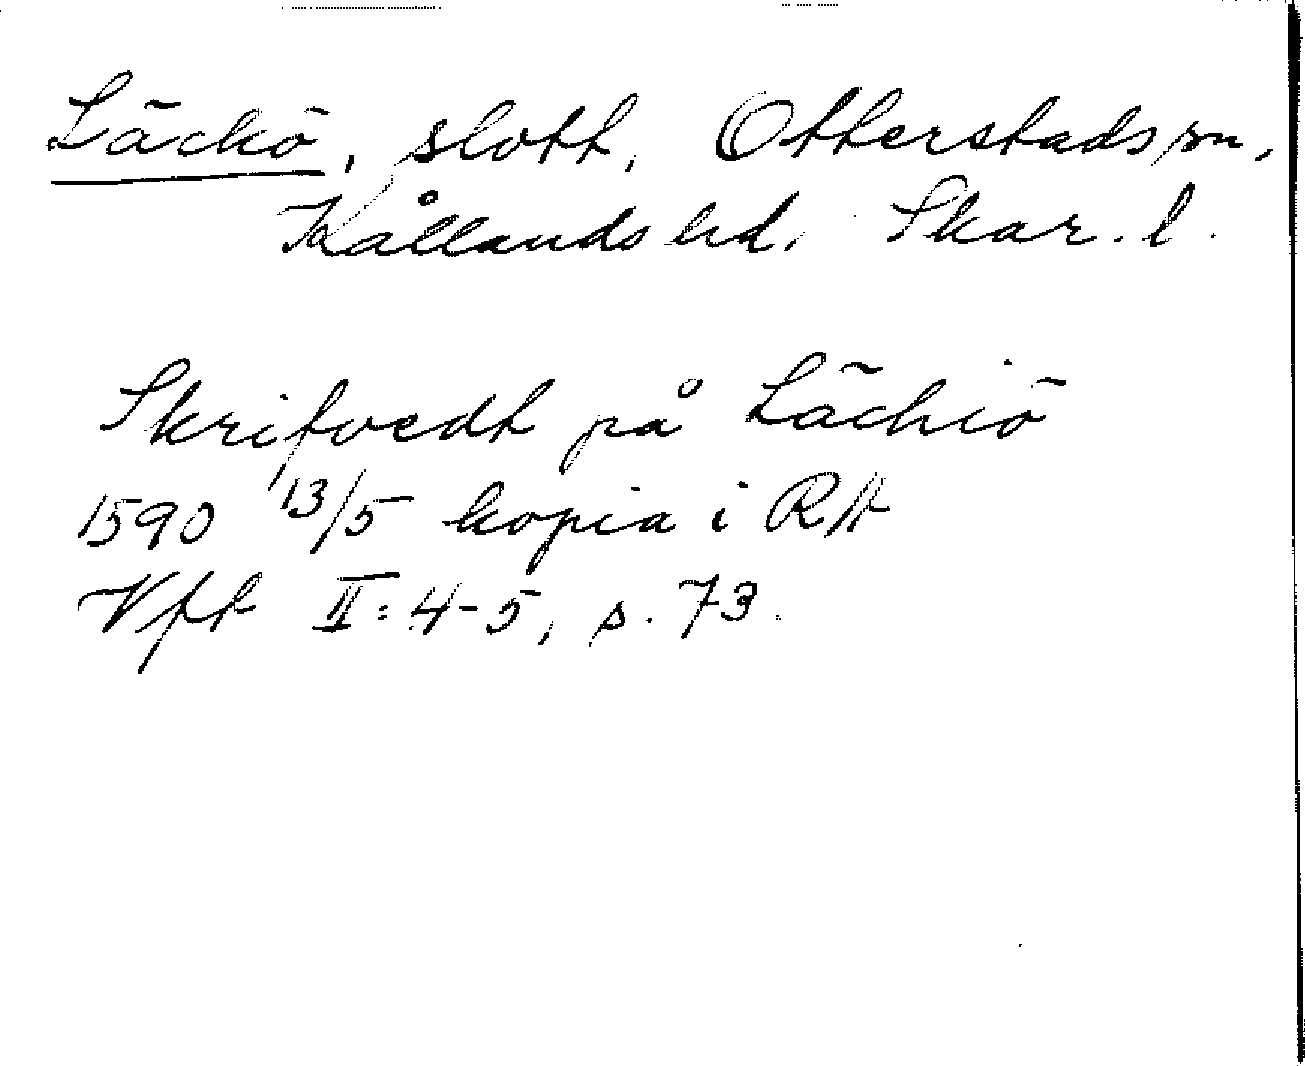 Läckö, slott, Otterstads sn,
Kållands hd. Skar. l.
Skrifvedt på Läckiö
1590 13/5 kopia i RA
Vft II:4-5, s. 73.